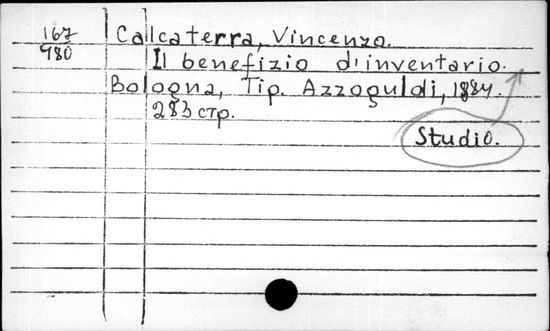 167
980
Calcaterra, Vincenzo.
Il benefizio d'inventario.
Bologna, Tip. Azzoguldi, 1884.
283 стр.
Studio.